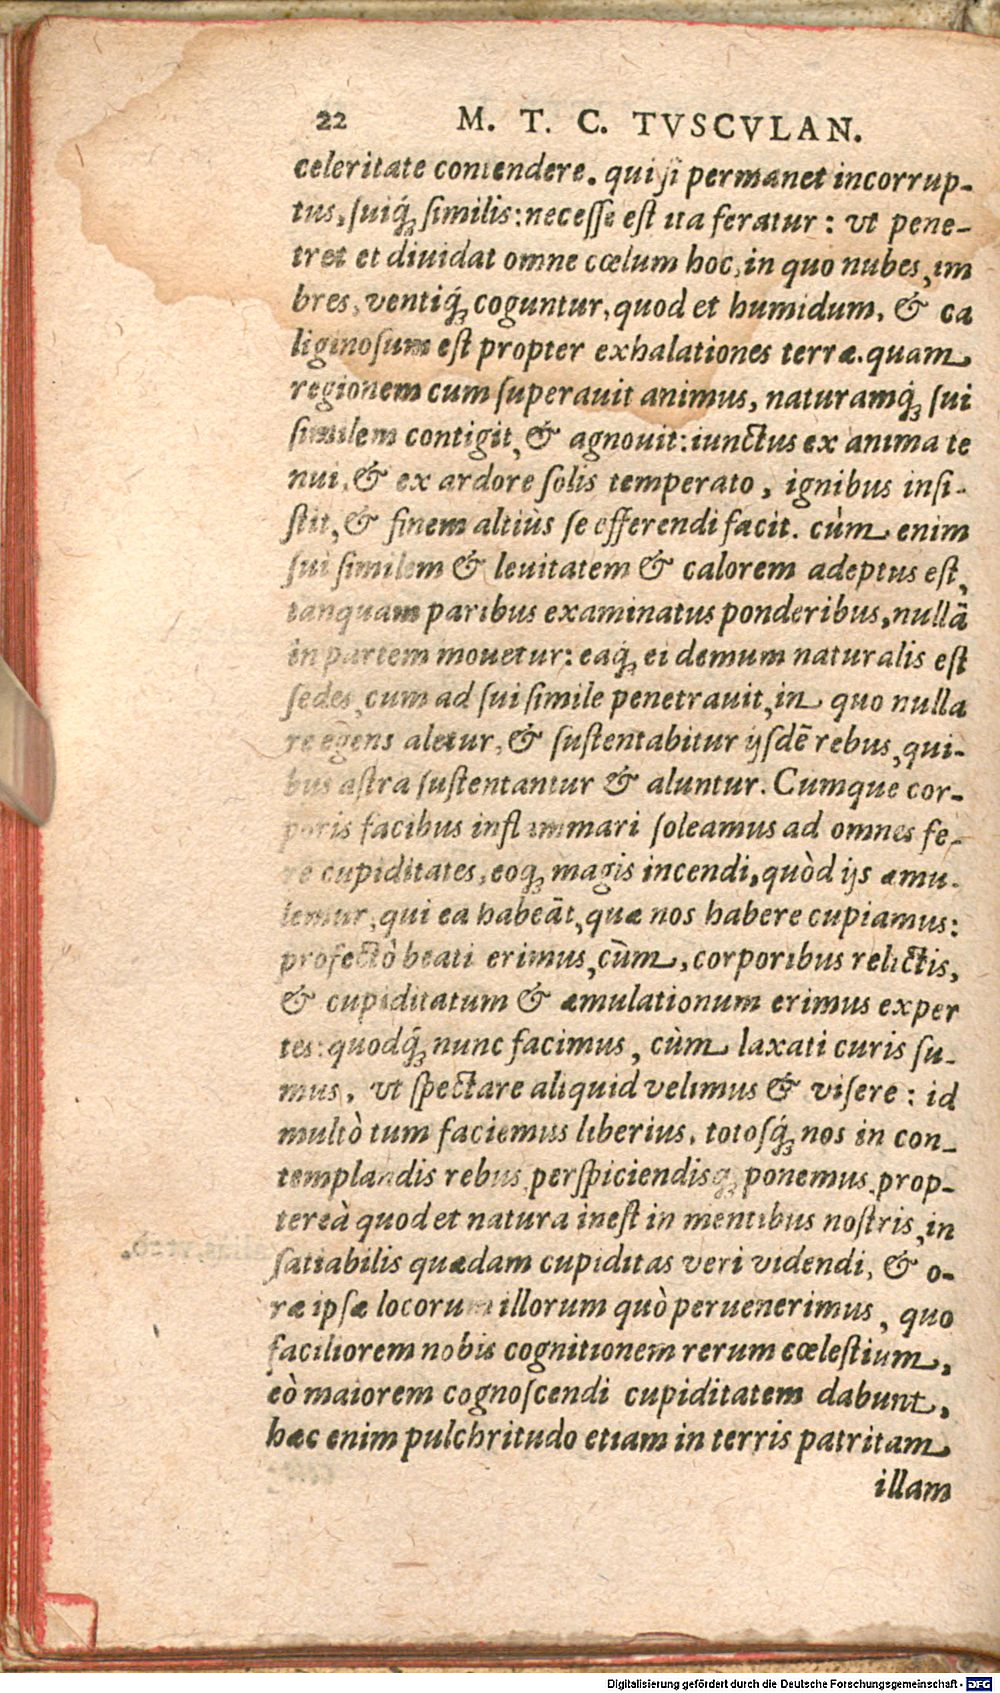 22 M. T. C. TVSCVLAN.
celeritate contendere. qui ſi permanet incorrup-
tus, ſuiq́; ſimilis: neceſſe eſt ita feratur: vt pene-
tret et diuidat omne cœlum hoc, in quo nubes, im
bres, ventiq́; coguntur, quod et humidum, & ca
liginoſum eſt propter exhalationes terræ. quam
regionem cum ſuperauit animus, naturamq́; ſui
ſimilem contigit, & agnouit: iunctus ex anima te
nui, & ex ardore ſolis temperato, ignibus inſi-
ſtit, & finem altiùs ſe efferendi facit. cùm enim
ſui ſimilem & leuitatem & calorem adeptus eſt,
tanquam paribus examinatus ponderibus, nullā
in partem mouetur: eaq́; ei demum naturalis eſt
ſedes, cum ad ſui ſimile penetrauit, in quo nulla
re egēns aletur, & ſuſtentabitur ijſdē rebus, qui-
bus aſtra ſuſtentantur & aluntur. Cumque cor-
poris facibus inflammari ſoleamus ad omnes fe-
re cupiditates, eoq́; magis incendi, quòd ijs æmu-
lemur, qui ea habeāt, quæ nos habere cupiamus:
profectò beati erimus, cùm, corporibus relictis,
& cupiditatum & æmulationum erimus exper
tes: quodq́; nunc facimus, cùm laxati curis ſu-
mus, vt ſpectare aliquid velimus & viſere: id
multò tum faciemus liberius, totoſq́; nos in con-
templandis rebus, perſpiciendisq́; ponemus. prop-
tereà quod et natura ineſt in mentibus noſtris, in
ſatiabilis quædam cupiditas veri videndi, & o-
ræ ipſæ locorum illorum quò peruenerimus, quo
faciliorem nobis cognitionem rerum cœleſtium,
eò maiorem cognoſcendi cupiditatem dabunt,
hæc enim pulchritudo etiam in terris patritam
illam
Digitalisierung gefördert durch die Deutsche Forschungsgemeinschaft - DFG